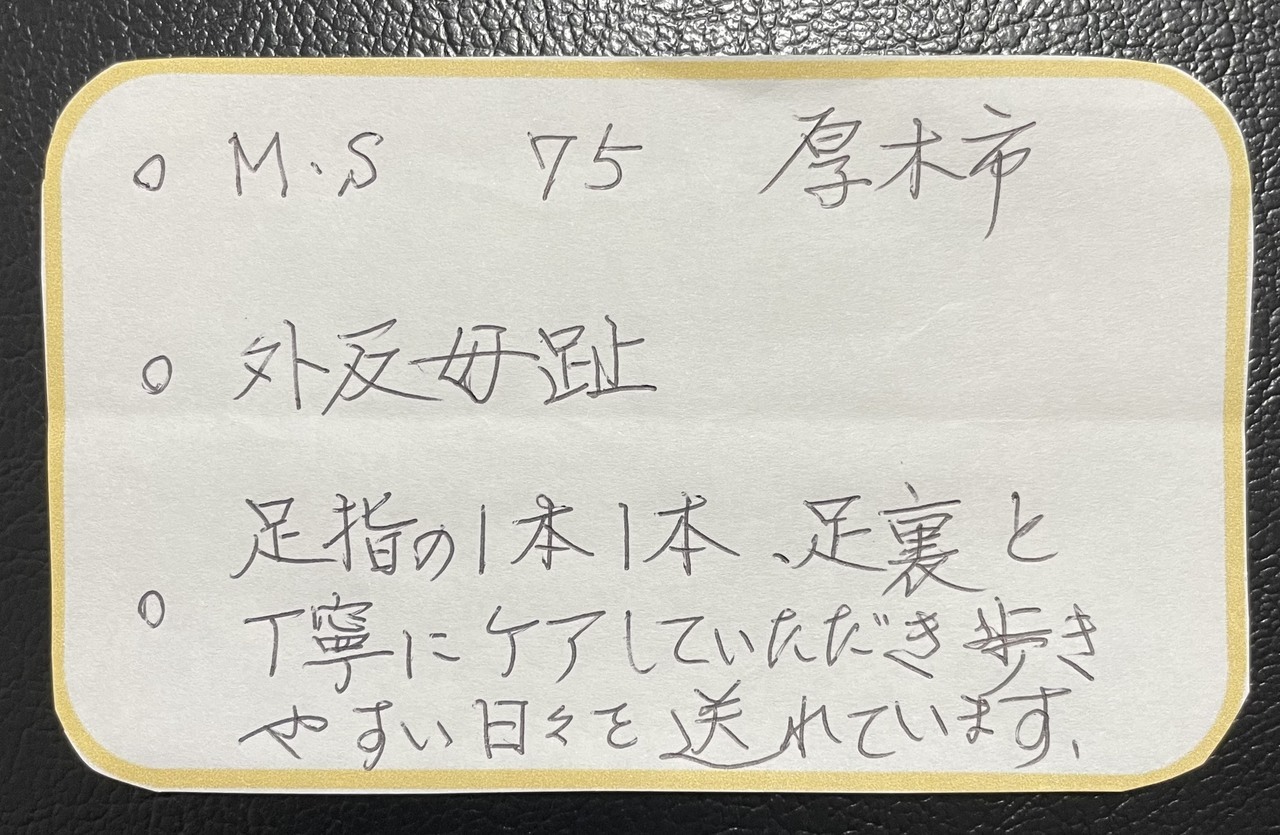 ○ M.S 75 厚木市
○ 外反母趾
足指の1本1本、足裏と
○ 丁寧にケアしていただき歩き
やすい日々を送れています。